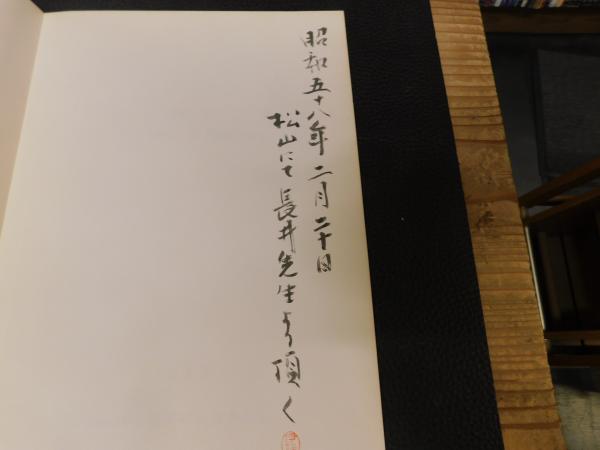 昭和五十八年二月二十日
松山にて長井先生より頂く